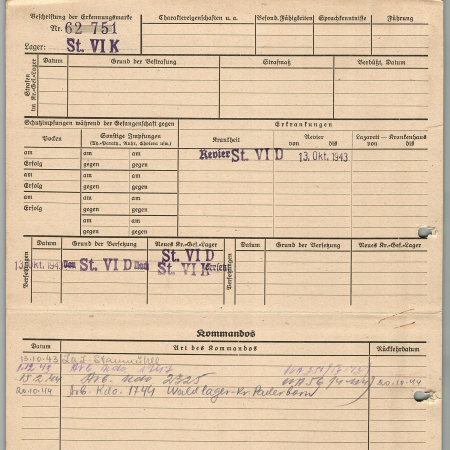 Beschriftung der Erkennungsmarke
Nr. 62 751
Lager: St. VI K
Charaktereigenschaften u. a.
Besond. Fähigkeiten
Sprachkenntnisse
Führung
Strafen im Kr.-Gef.-Lager
Datum
Grund der Bestrafung
Strafmaß
Verbüßt, Datum
Schutzimpfungen während der Gefangenschaft gegen
Erkrankungen
Pocken
Sonstige Impfungen
(Ty.-Paraty., Ruhr, Cholera usw.)
Krankheit
Revier
von bis
Lazarett — Krankenhaus
von bis
am am am
Erfolg gegen gegen
am am am
Erfolg gegen gegen
am am am
Erfolg gegen gegen
am am
gegen gegen
Revier St. VI D 13. Okt. 1943
Versetzungen
Datum
Grund der Versetzung
Neues Kr.-Gef.-Lager
Versetzungen
Datum
Grund der Versetzung
Neues Kr.-Gef.-Lager
13. Okt. 1943 Von St. VI D Nach St. VI D
St. VI K versetzt
Kommandos
Datum
Art des Kommandos
Rückkehrdatum
13.10.43
Arb. Kdo.
15.2.44 Arb. Kdo 2325 20.10.44
20.10.44 Arb. Kdo. 1744 Waldlager-Kr. Paderborn